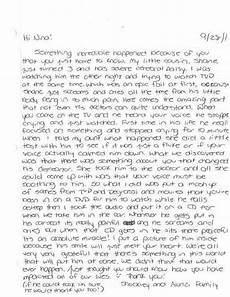 Hi Nina! 9/23/11
Something incredible happened because of you
that you just have to know. My little cousin, Shane,
just turned 3 and has severe cerebral palsy. I was
watching him the other night and trying to watch TVD
at the same time which was an epic fail at first, because
Shane just screams and cries all the time from his little
body being in so much pain. Here comes the amazing part
that not even his doctors can quite understand. When
you came on the TV and he heard your voice he stopped
crying and just watched. First time in his life he really
focused on something and stopped crying for 10 minute
when I told my aunt what happened we did a little
test with him to see if it was just a fluke or if your
voice actually calmed him down. What we discovered
was that there was something about you that changed
his demeanor. She took him to the doctor and all she
could come up with was that your voice must be
soothing to him. So what I did was put a mash up
of scenes from TVD and Degrassi and movies that you've
been in on a DVD for him to watch while he really
calmed then I took the audio and put it on a CD for
when we take him in the car. Whenever he gets put in
his carseat its really painful and he screams and
cries but when that CD goes in he sits there peacefully.
Its an absolute miracle! I put a picture of him inside
because his smile will just melt your heart. We're all
very very grateful that there's something in this world
that will put him at ease, we didn't think that would
ever happen. Just thought you should know how you have
impacted all of our lives. Thank you!
(if he could talk, I'm sure Shockley and Auric Family
he would thank you too!)